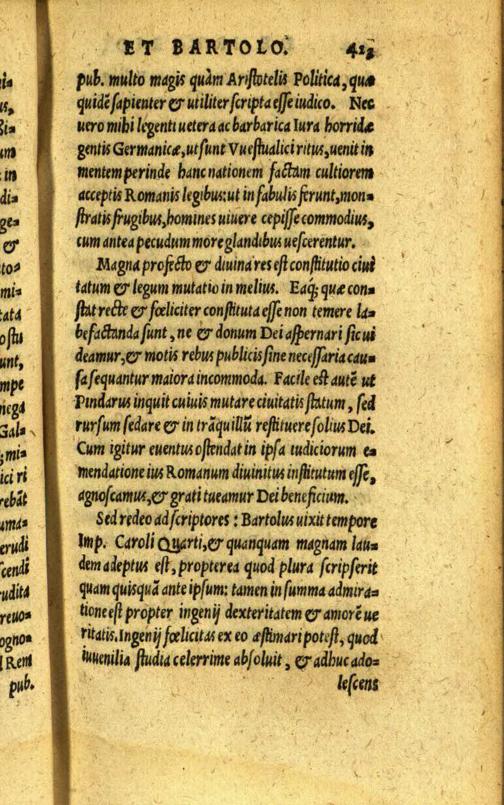 ET BARTOLO. 413
pub. multo magis quàm Aristotelis Politica, quæ
quidē sapienter & utiliter scripta esse iudico. Nec
uero mihi legenti uetera ac barbarica Iura horridæ
gentis Germanicæ, ut sunt Vuestualici ritus, uenit in
mentem perinde hanc nationem factam cultiorem
acceptis Romanis legibus: ut in fabulis ferunt, mon=
stratis frugibus, homines uiuere cepisse commodius,
cum antea pecudum more glandibus uescerentur.
Magna profecto & diuina res est constitutio ciui
tatum & legum mutatio in melius. Eaq́; quæ con=
stat recte & fœliciter constituta esse non temere la=
befactanda sunt, ne & donum Dei aspernari sic ui
deamur, & motis rebus publicis sine necessaria cau=
sa sequantur maiora incommoda. Facile est autē ut
Pindarus inquit cuiuis mutare ciuitatis statum, sed
rursum sedare & in trāquillū restituere solius Dei.
Cum igitur euentus ostendat in ipsa iudiciorum e=
mendatione ius Romanum diuinitus institutum esse,
agnoscamus, & grati tueamur Dei beneficium.
Sed redeo ad scriptores: Bartolus uixit tempore
Imp. Caroli Quarti, & quanquam magnam lau=
dem adeptus est, propterea quod plura scripserit
quam quisquā ante ipsum: tamen in summa admira=
tione est propter ingenij dexteritatem & amorē ue
ritatis. Ingenij fœlicitas ex eo æstimari potest, quod
iuuenilia studia celerrime absoluit, & adhuc ado=
lescens
us,
um
: in
di=
ge=
&
to=
mi=
tata
ostu
unt,
mpe
nega
Gal=
; mi=
ici ri
rebāt
uma=
erudi
scendi
rudita
reuo=
ogno=
d Rem
pub.